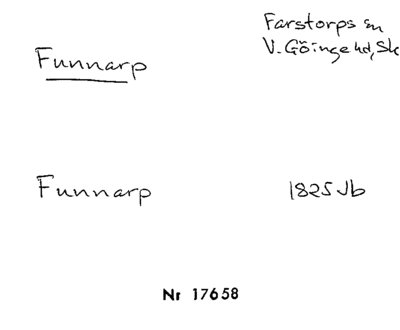 Farstorps sn
Funnarp
V. Göinge hd, Sk
Funnarp
1825 Jb
Nr 17658